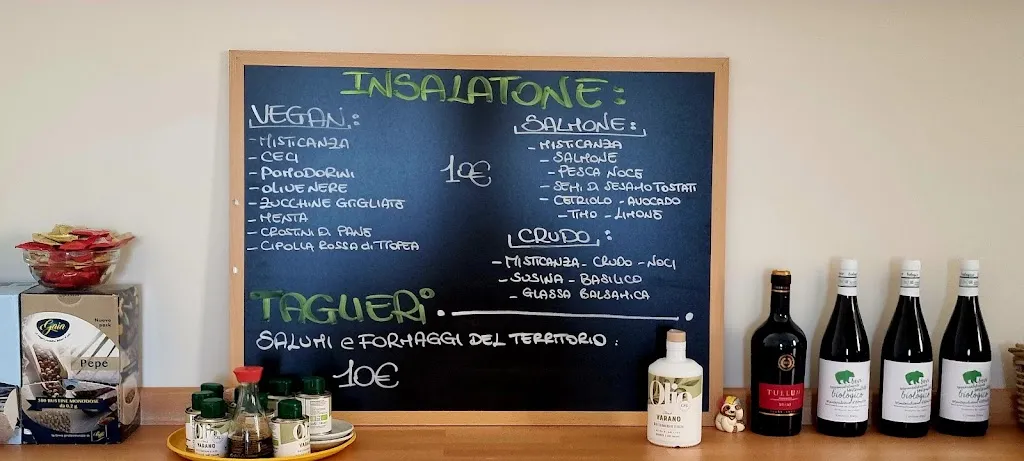 INSALATONE:
VEGAN:
- MISTICANZA
- CECI
- POMODORINI
- OLIVE NERE
- ZUCCHINE GRIGLIATE
- MENTA
- CROSTINI DI PANE
- CIPOLLA ROSSA di TROPEA
10€
SALMONE:
- MISTICANZA
- SALMONE
- PESCA NOCE
- SEMI DI SESAMO TOSTATI
- CETRIOLO - AVOCADO
- TIMO - LIMONE
CRUDO:
- MISTICANZA - CRUDO - NOCI
- SUSINA - BASILICO
- GLASSA BALSAMICA
TAGLIERI
SALUMI e FORMAGGI DEL TERRITORIO:
10€
Gaia
Nuovo pack
Pepe
500 BUSTINE MONODOSE
da 0,2 g
Olio
VARANO
Olio
VARANO
TULLUM
biologico
biologico
biologico